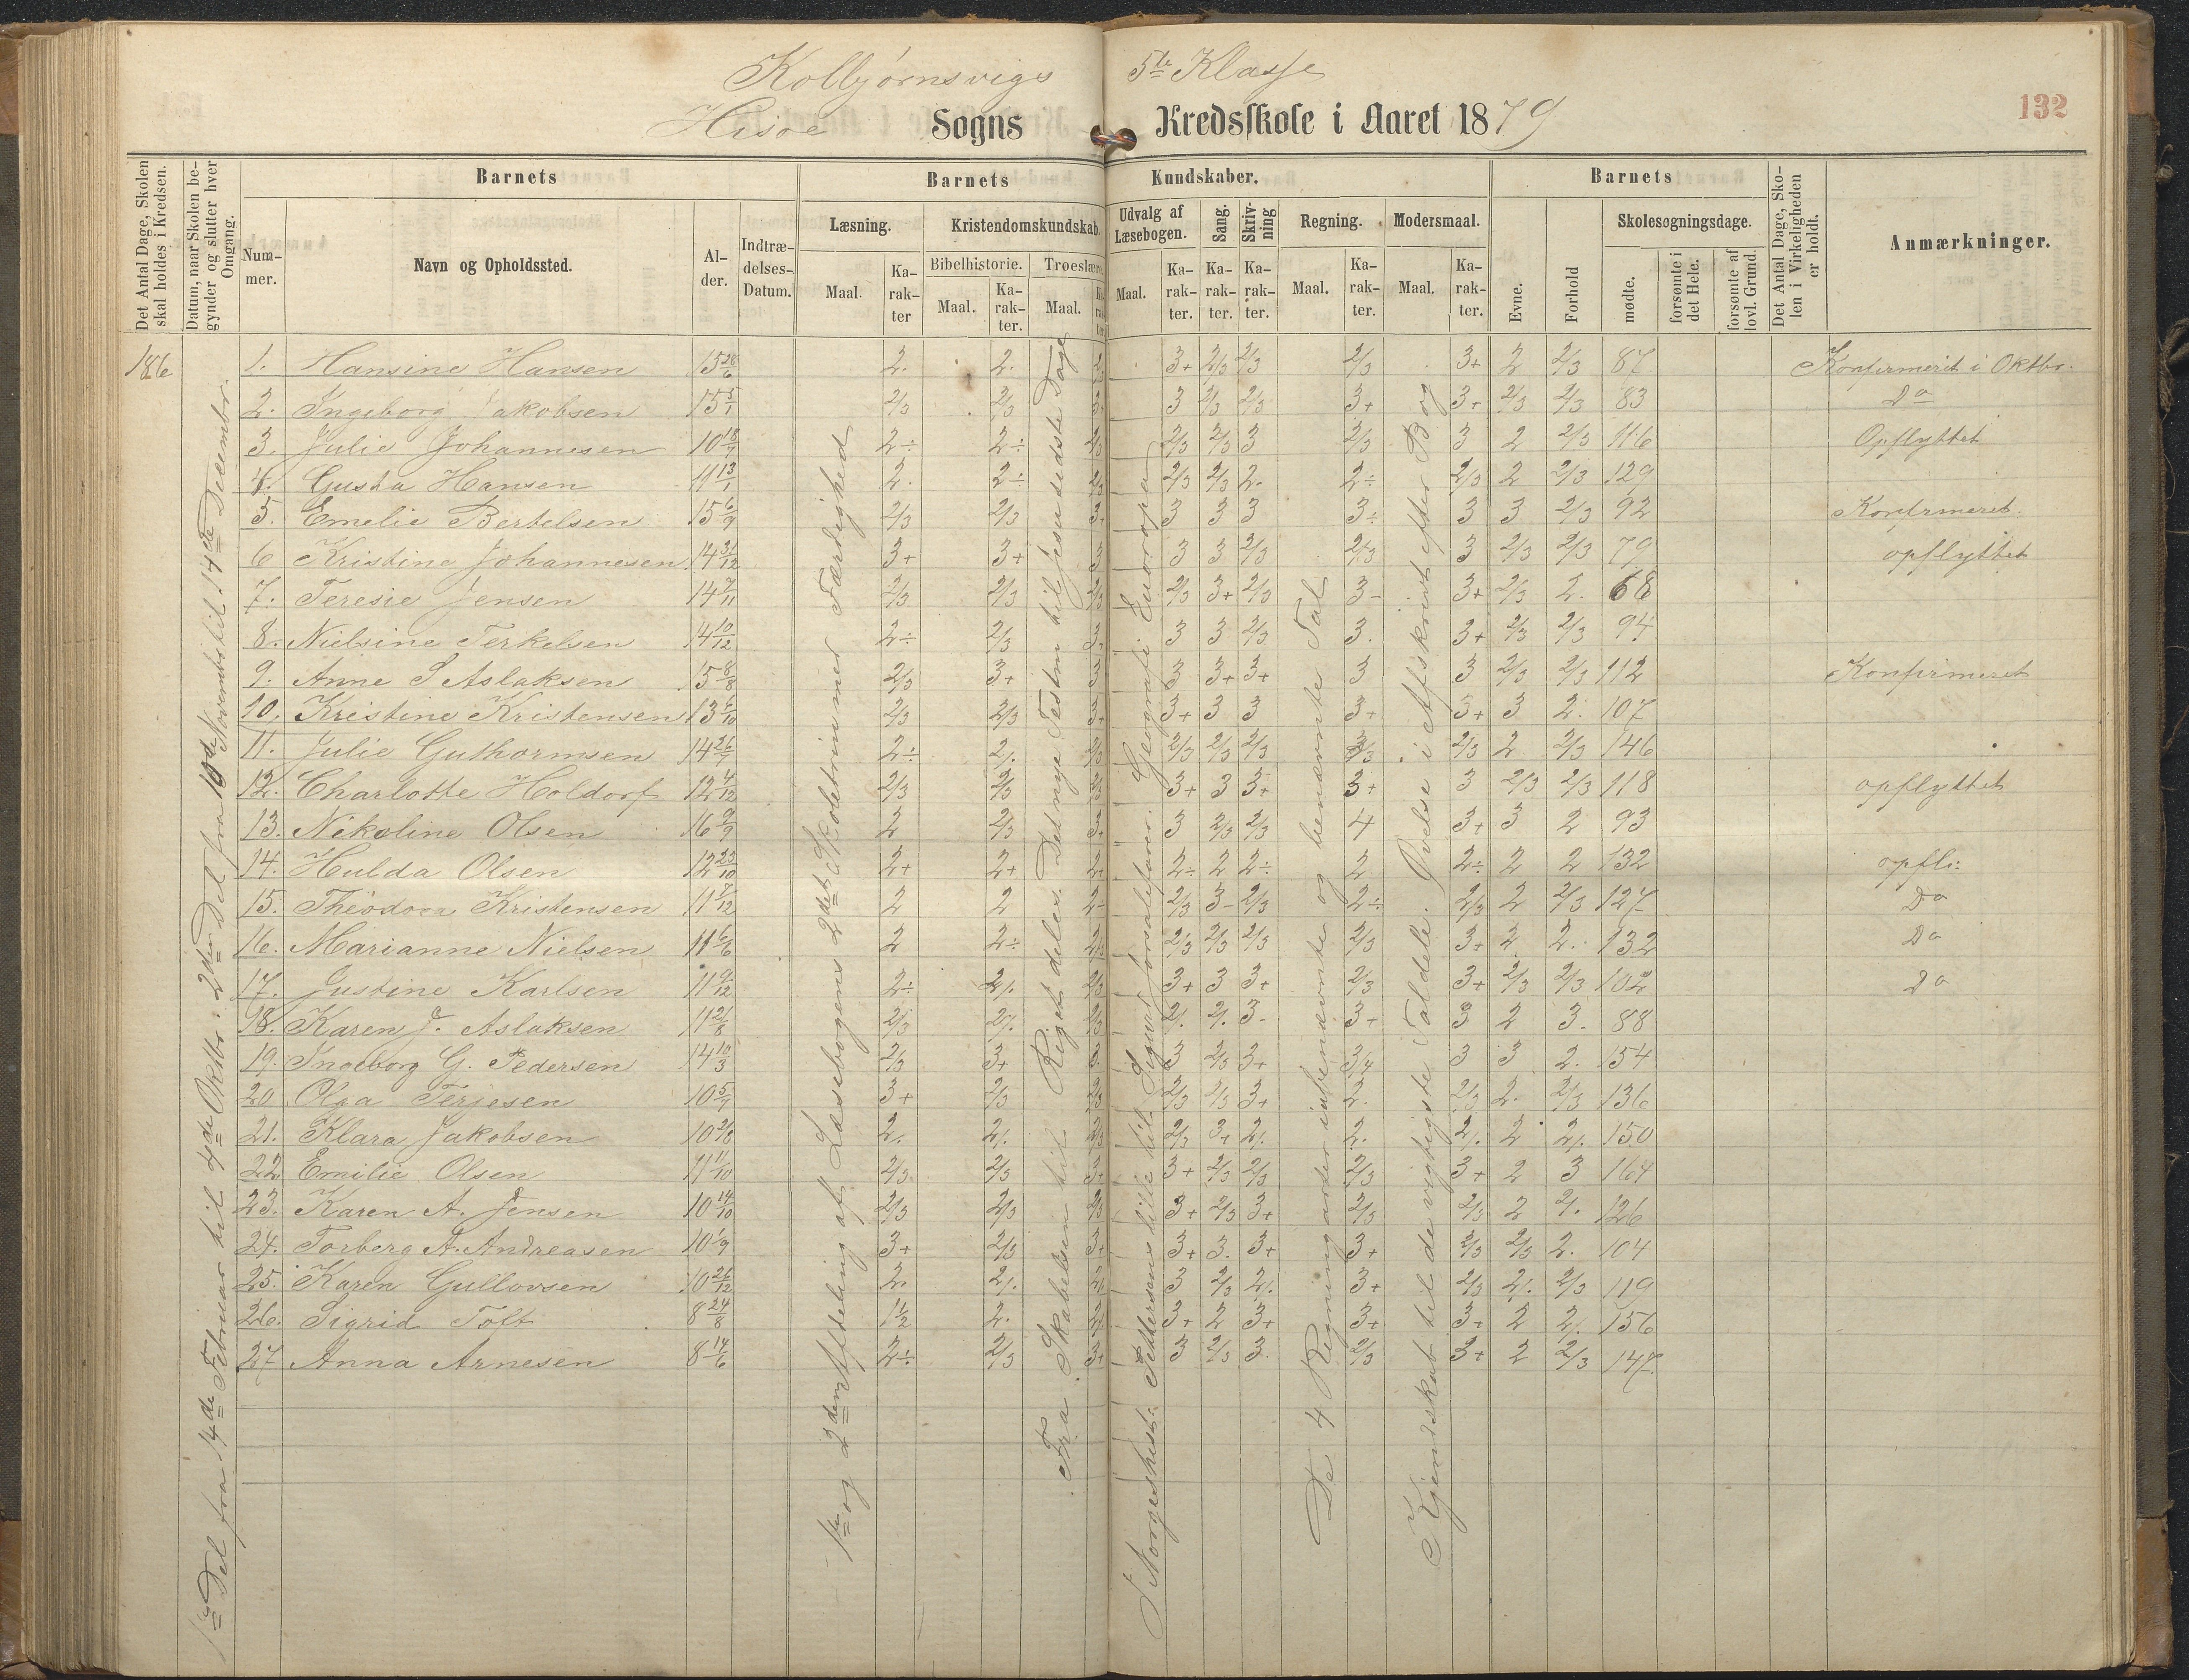 Kolbjørnsvigs 5te Klasse
Hisøe Sogns Kredsskole i Aaret 1879
132
Det Antal Dage, Skolen skal holdes i Kredsen.
Datum, naar Skolen begynder og slutter hver Omgang.
Barnets
Barnets Kundskaber.
Barnets
Det Antal Dage, Skolen i Virkeligheden er holdt.
Anmærkninger.
Nummer.
Navn og Opholdssted.
Alder.
Indtrædelses-Datum.
Læsning.
Kristendomskundskab.
Udvalg af Læsebogen.
Sang.
Skrivning
Regning.
Modersmaal.
Evne.
Forhold
Skolesøgningsdage.
Bibelhistorie.
Troeslære.
Maal. Karakter
Maal. Karakter.
Maal.
Maal. Karakter. Karakter. Karakter.
Maal. Karakter.
Maal. Karakter.
mødte.
forsømte i det Hele.
forsømte af lovl. Grund.
186
1ste Del fra 14de Februar til 4de Oktbr: 2den Del fra 10de Novembr til 14de Decembr.
1ste og 2den Afdeling af Læsebogens 2det Skoletrin med Færdighed
Fra Skabelsen til Rigets deles. Det nye Testm til Jesu sidste Dage
De 4 Regningsarter i ubenævnte og benævnte Tal
Kjendskab til de vigtigste Taldele. Øvelse i Afskrivt efter Bog
1. Hansine Hansen 15 28/6 2. 2. 3+ 2/3 2/3 2/3 3+ 2 2/3 87 Konfirmeret i Oktbr.
2. Ingeborg Jakobsen 15 5/1 2/3 2/3 3 2/3 2/3 3+ 3+ 2/3 2/3 83 Do
3. Julie Johannesen 10 18/7 2÷ 2÷ 2/3 2/3 3 2/3 3 2 2/3 116 Opflyttet
4. Gusta Hansen 11 13/1 2. 2÷ 2/3 2/3 2. 2÷ 2/3 2 2/3 129
5. Emelie Bertelsen 15 6/9 2/3 2/3 3 3 3 3÷ 3 3 2/3 92 Konfirmeret.
6 Kristine Johannesen 14 31/12 3+ 3+ 3 3 2/3 2/3 3 2/3 2/3 79 opflyttet
7. Teresie Jensen 14 7/11 2/3 2/3 2/3 3+ 2/3 3- 3+ 2/3 2. 68
8. Nielsine Terkelsen 14 10/12 2÷ 2/3 3 3 2/3 3. 3+ 2/3 2/3 94
9. Anne S Aslaksen 15 8/8 2/3 3+ 3 3+ 3+ 3 3 2/3 2/3 112 Konfirmeret
10. Kristine Kristensen 13 6/10 2/3 2/3 3+ 3 3 3+ 3+ 3 2. 107
11. Julie Guthormsen 14 26/7 2÷ 2/. 2/3 2/3 2/3 2/3 2/3 2 2/3 146
12. Charlotte Holdorf 12 4/12 2/3 2/3 3+ 3 3+ 3+ 3 2/3 2/3 118 opflyttet
13. Nikoline Olsen 16 9/9 2 2/3 3 2/3 2/3 4 3+ 3 2 93
14. Hulda Olsen 12 23/10 2+ 2+ 2÷ 2 2÷ 2 2÷ 2 2 132 opfl:
15. Theodora Kristensen 11 7/12 2 2 2/3 3- 2/3 2÷ 2/3 2 2/3 127 Do
16. Marianne Nielsen 11 6/6 2 2÷ 2/3 2/3 2/3 2/3 3+ 2 2. 132 Do
17. Justine Karlsen 11 9/12 2÷ 2/. 3+ 3 3+ 2/3 3+ 2/3 2/3 102 Do
18. Karen J. Aslaksen 11 21/8 2/3 2/. 2/. 2/. 3- 3+ 3 2 3. 88
19. Ingeborg G. Pedersen 14 10/3 2/3 3+ 3 2/3 3+ 3/4 3 3 2. 154
20 Olga Terjesen 10 5/7 3+ 2/3 2/3 2/3 3+ 2. 2/3 2. 2/3 136
21. Klara Jakobsen 2. 2/. 2/3 3+ 2/. 2. 2/. 2 2/. 150
22 Emilie Olsen 11 11/10 2/3 2/3 3+ 2/3 2/3 2/3 3+ 2 3 164
23. Karen A. Jensen 10 14/10 2/3 2/3 3+ 2/3 3+ 2/3 2/3 2 2/. 126
24. Torberg A. Andreasen 10 1/9 3+ 2/3 3+ 3. 3+ 3+ 2/3 2/3 2. 104
25. Karen Gullovsen 10 26/12 2. 2/. 3 2/3 2/. 3+ 2/3 2/. 2/3 119
26. Sigrid Toft 8 24/8 1½ 2. 3+ 2 3+ 3+ 3+ 2 2/. 156
27 Anna Arnesen 8 14/6 2÷ 2/3 3 2/3 3. 2/3 3+ 2 2/3 147